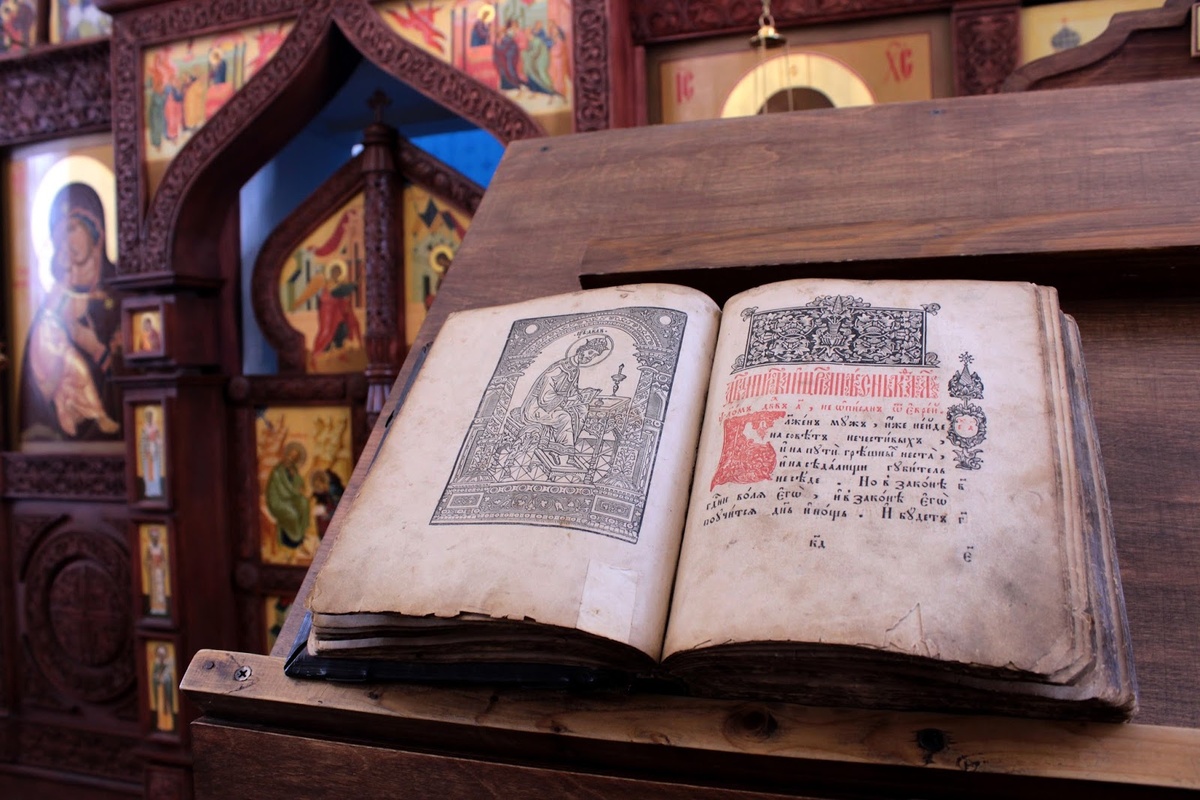 І҃С Х҃С
не ѡписанъ ѿ Еврей
Блаженъ мꙋжъ, и҆́же неи́де
на совѣ́тъ нечести́выхъ,
и҆ на пꙋтѝ грѣ́шныⷯ неста̀,
и҆ на сѣда́лищи гꙋби́тель
не сѣ́де . Но в̾ зако́нѣ в҃
гдⷭ҇ни во́лѧ Є҆гѡ̀, и҆ в̾ зако́нѣ Є҆гѡ̀
поꙋчи́тсѧ дн҃ь и҆ но́щь . И бꙋ́детъ г҃
к҃д
є҃